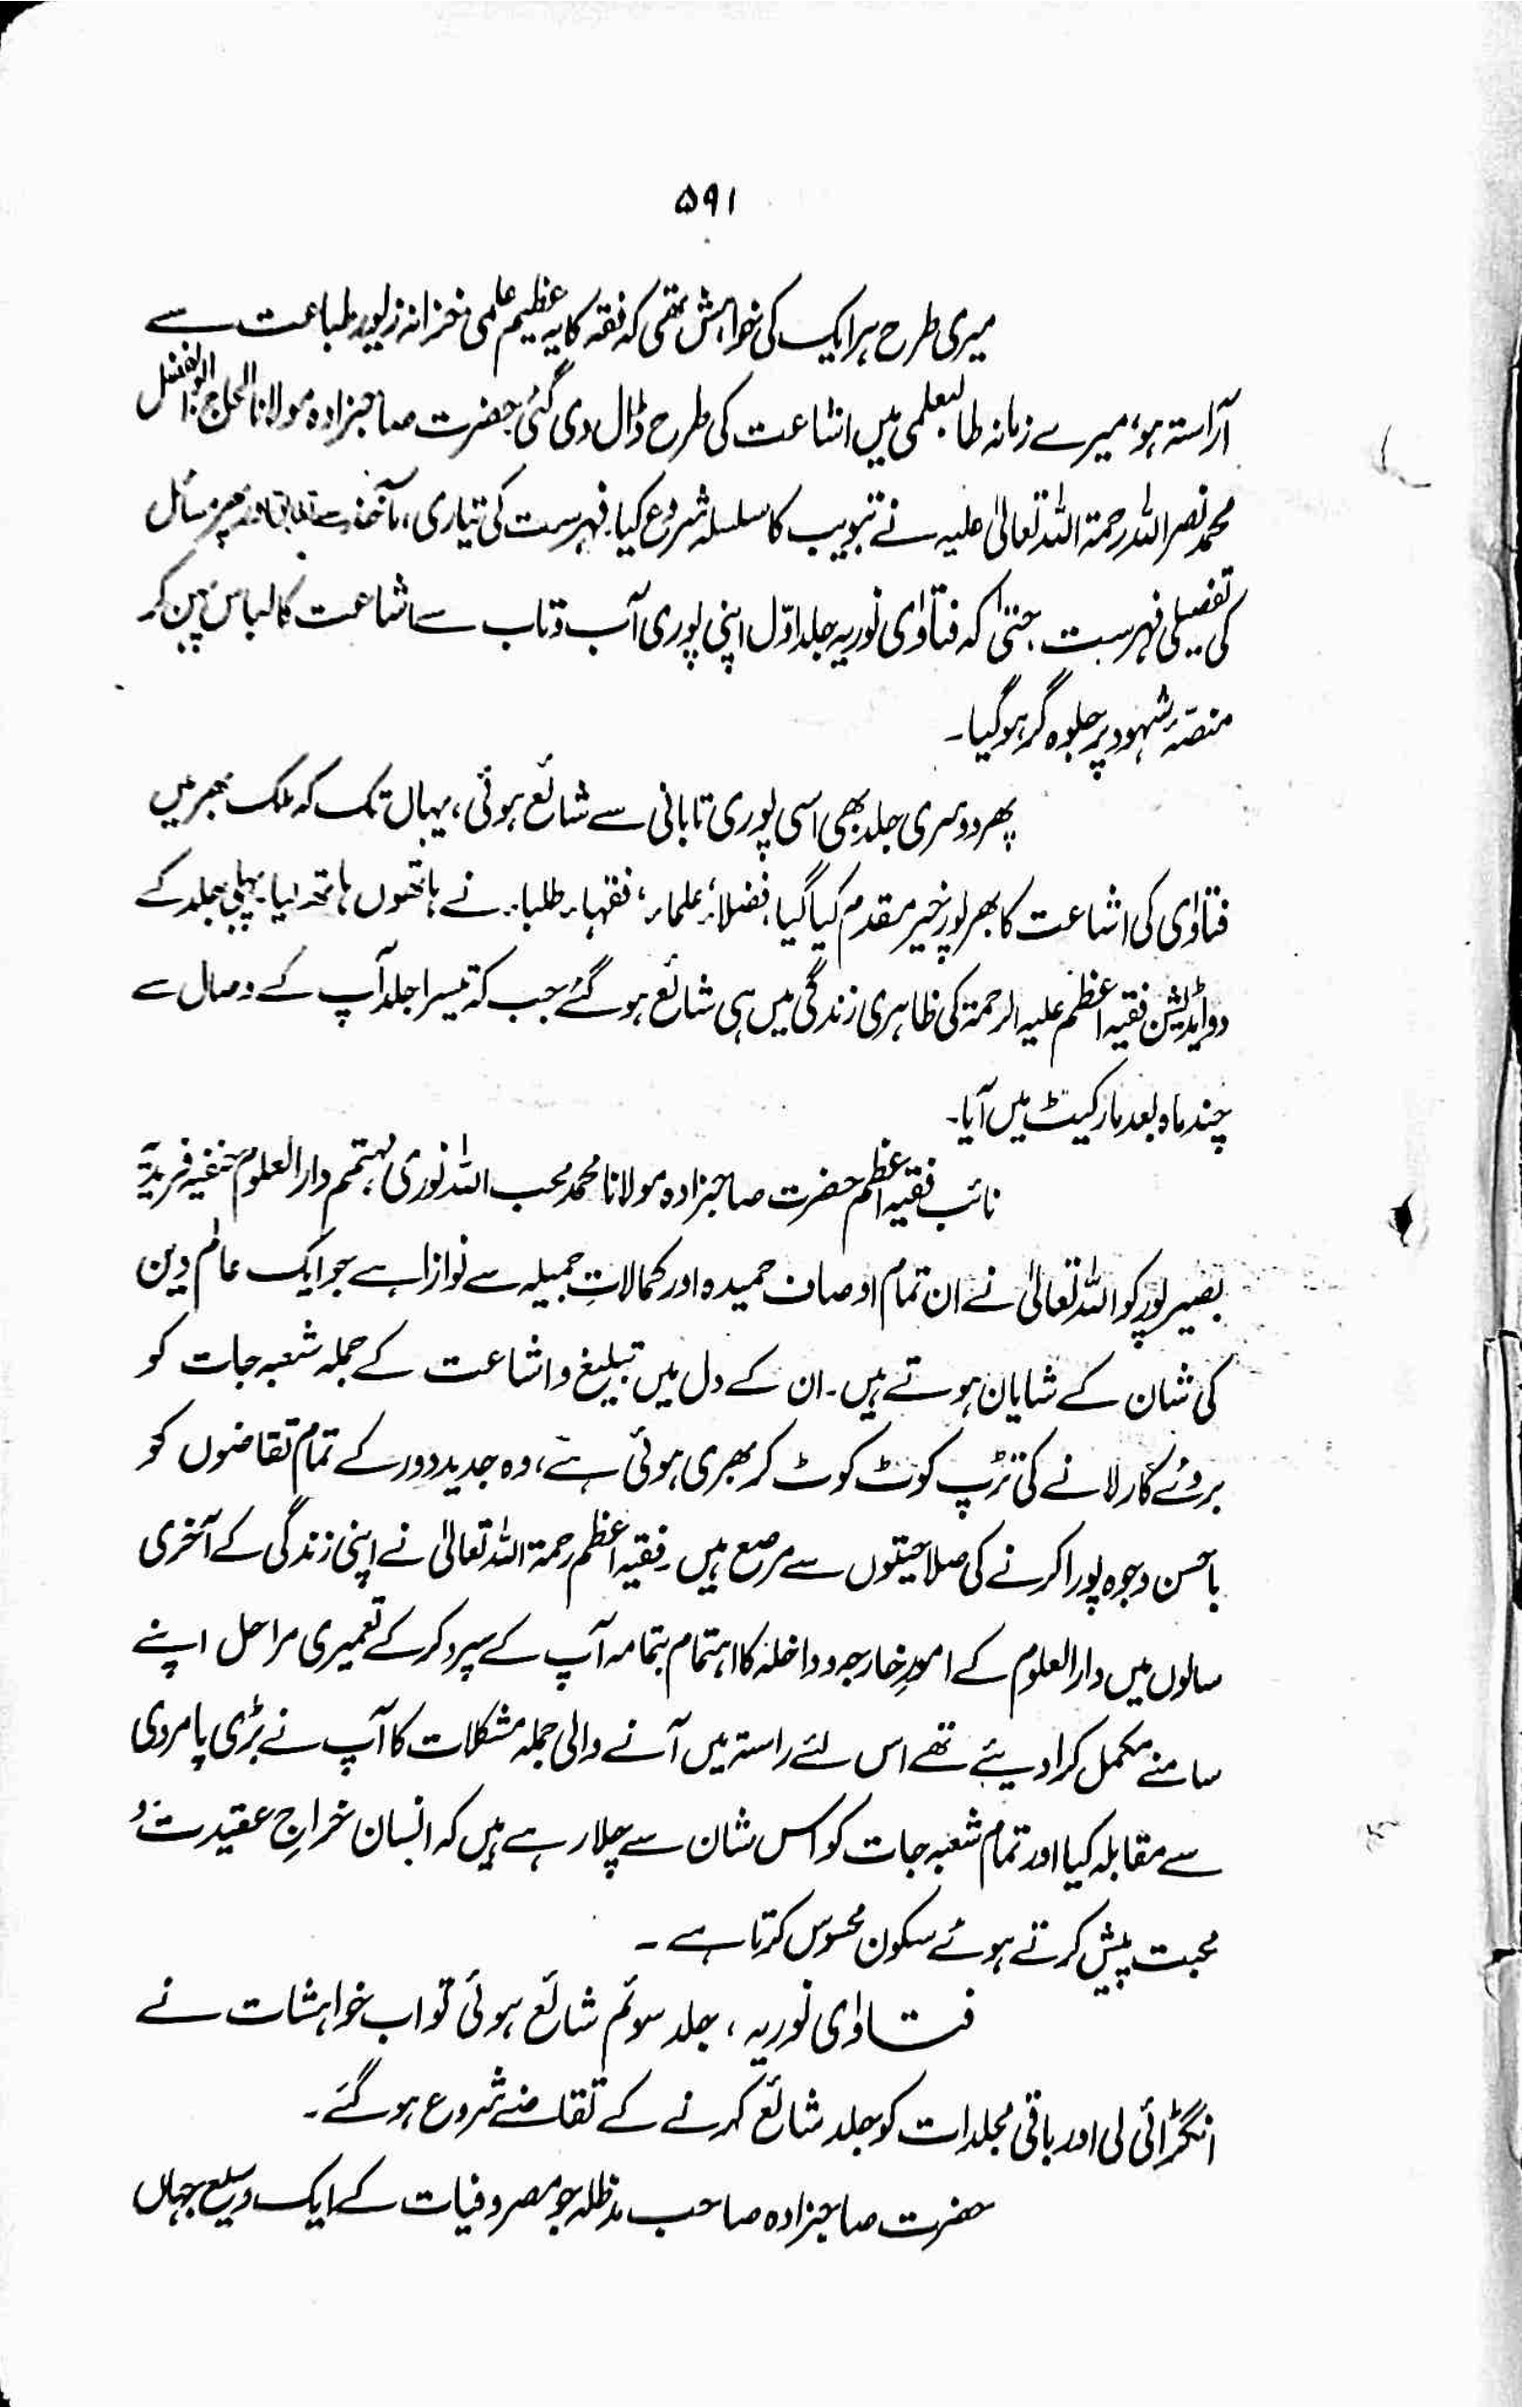 ۵۹۱
میری طرح ہر ایک کی خواہش تھی کہ فقہ کا یہ عظیم علمی خزانہ زیور طباعت سے
آراستہ ہو، میرے زمانہ طالبعلمی میں اشاعت کی طرح ڈال دی گئی حضرت صاحبزادہ مولانا الحاج ابوالفضل
محمد نصر اللہ رحمۃ اللہ تعالیٰ علیہ نے تبویب کا سلسلہ شروع کیا۔ فہرست کی تیاری، مآخذ سے تطابق اور پھر مسائل
کی تفصیلی فہرست، حتیٰ کہ فتاوٰی نوریہ جلد اوّل اپنی پوری آب و تاب سے اشاعت کا لباس پہن کر
منصّۂ شہود پر جلوہ گر ہو گیا۔
پھر دوسری جلد بھی اسی پوری تابانی سے شائع ہوئی، یہاں تک کہ ملک بھر میں
فتاوٰی کی اشاعت کا بھرپور خیر مقدم کیا گیا، فضلاء، علماء، فقہاء، طلباء نے ہاتھوں ہاتھ لیا۔ پہلی جلد کے
دو ایڈیشن فقیہ اعظم علیہ الرحمۃ کی ظاہری زندگی میں ہی شائع ہو گئے جب کہ تیسرا جلد آپ کے وصال سے
چند ماہ بعد مارکیٹ میں آیا۔
نائب فقیہ اعظم حضرت صاحبزادہ مولانا محمد محب اللہ نوری مہتمم دار العلوم حنفیہ فریدیہ
بصیر پور کو اللہ تعالیٰ نے ان تمام اوصاف حمیدہ اور کمالاتِ جمیلہ سے نوازا ہے جو ایک عالمِ دین
کی شان کے شایان ہوتے ہیں۔ ان کے دل میں تبلیغ و اشاعت کے جملہ شعبہ جات کو
بروئے کار لانے کی تڑپ کوٹ کوٹ کر بھری ہوئی ہے، وہ جدید دور کے تمام تقاضوں کو
باحسن وجوہ پورا کرنے کی صلاحیتوں سے مرصع ہیں۔ فقیہ اعظم رحمۃ اللہ تعالیٰ نے اپنی زندگی کے آخری
سالوں میں دار العلوم کے امورِ خارجہ و داخلہ کا اہتمام بتمامہ آپ کے سپرد کر کے تعمیری مراحل اپنے
سامنے مکمل کرا دیئے تھے اس لئے راستہ میں آنے والی جملہ مشکلات کا آپ نے بڑی پامردی
سے مقابلہ کیا اور تمام شعبہ جات کو اس شان سے چلا رہے ہیں کہ انسان خراجِ عقیدت و
محبت پیش کرتے ہوئے سکون محسوس کرتا ہے۔
فتاوٰی نوریہ، جلد سوئم شائع ہوئی تو اب خواہشات نے
انگڑائی لی اور باقی مجلدات کو جلد شائع کرنے کے تقاضے شروع ہو گئے۔
حضرت صاحبزادہ صاحب مدظلہ جو مصروفیات کے ایک وسیع جہاں